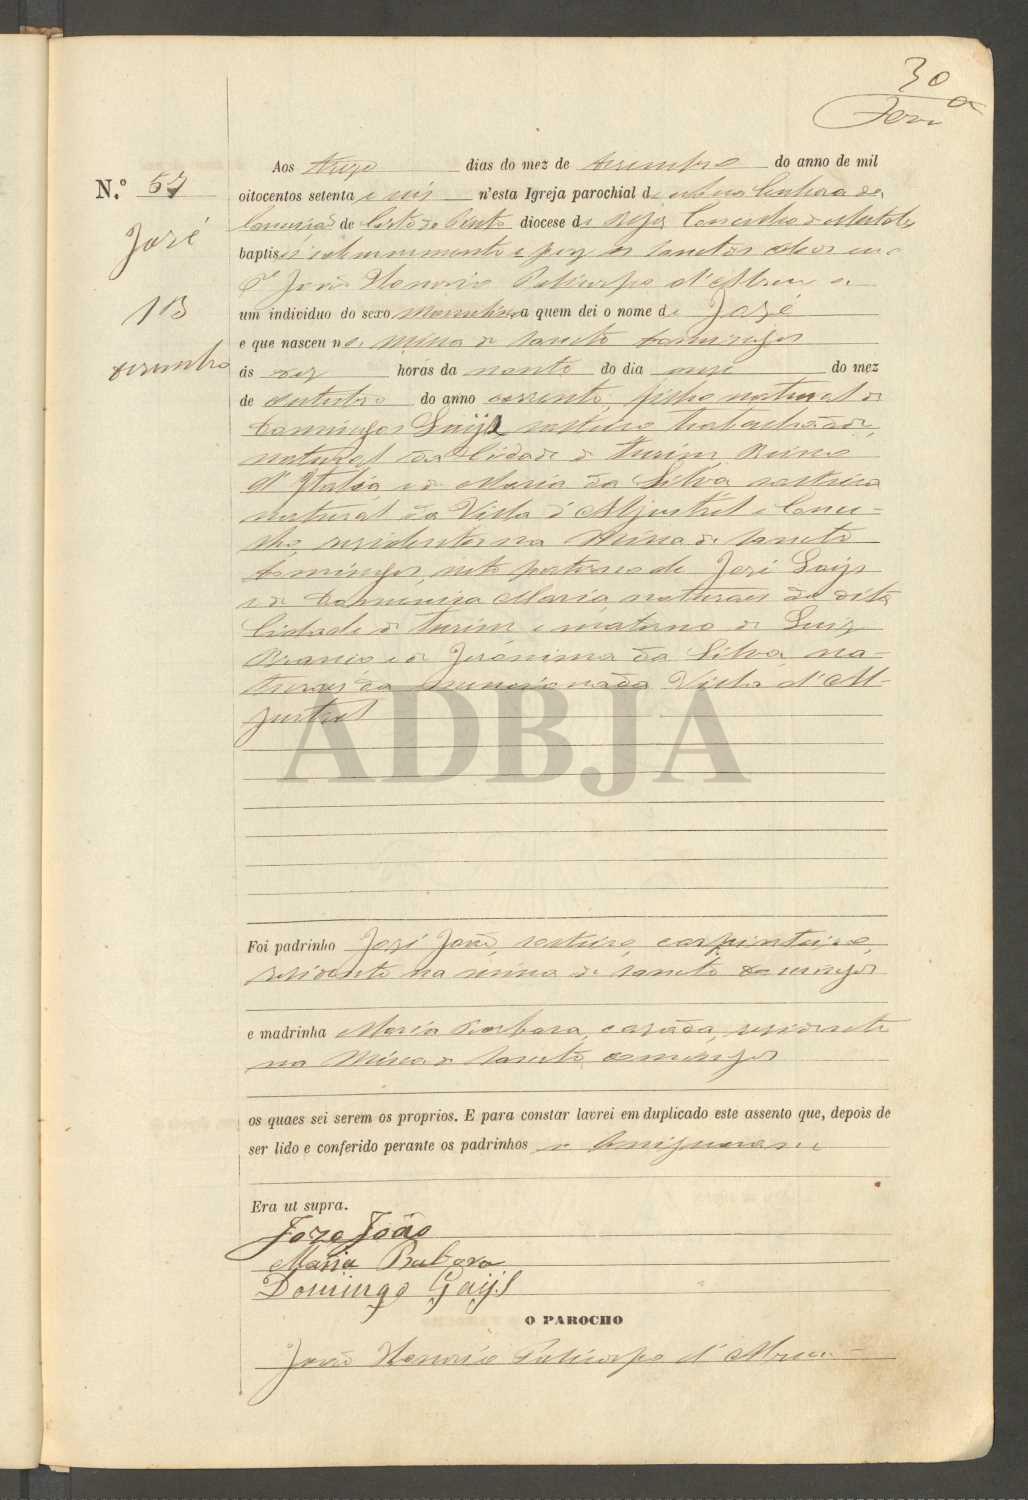 30
Aos treze dias do mez de dezembro do anno de mil
N.º 57
oitocentos setenta e seis n'esta Igreja parochial de Senhora da
Conceição de diocese de Beja Concelho de Mertola
José
baptisei solemnemente e puz os sanctos oleos eu o
Pe João Honorio Policarpo d'Abreu a
13
um individuo do sexo masculino a quem dei o nome de José
e que nasceu na Mina de Sancto Domingos
dezembro
ás dez horas da noute do dia onze do mez
de outubro do anno corrente, filho natural de
Domingos Gaijs solteiro trabalhador,
natural da Cidade de Turim Reino
d'Italia e de Maria da Silva solteira
natural da Villa d'Aljustrel e Conce-
lho, residentes na Mina de Sancto
Domingos, neto paterno de José Gaijs
e de Domenica Maria, naturaes da dita
Cidade de Turim e materno de Luiz
e de Jerónima da Silva, na-
turaes da mencionada Villa d'Al-
justrel
ADBJA
Foi padrinho José João, solteiro, carpinteiro,
residente na mina de Sancto Domingos
e madrinha Maria Barbara, casada, residente
na Mina de Sancto Domingos
os quaes sei serem os proprios. E para constar lavrei em duplicado este assento que, depois de
ser lido e conferido perante os padrinhos
Era ut supra.
Joze João
Maria Barbora
Domingo Gaijs
O PAROCHO
João Honorio Policarpo d'Abreu